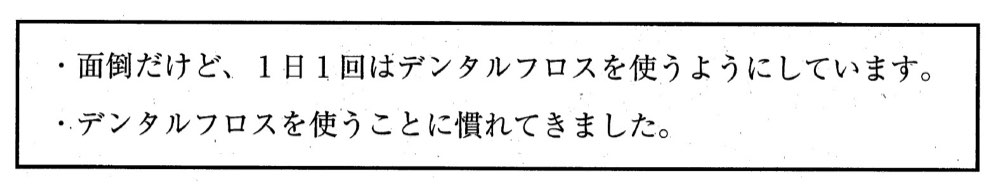 ・面倒だけど、１日１回はデンタルフロスを使うようにしています。
・デンタルフロスを使うことに慣れてきました。